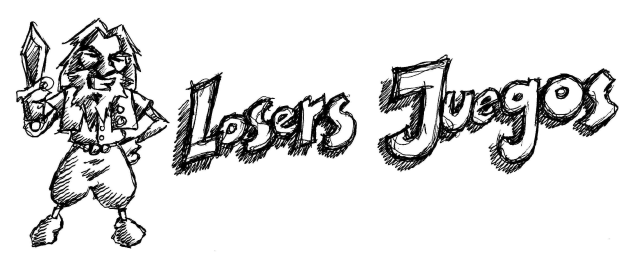 Losers Juegos